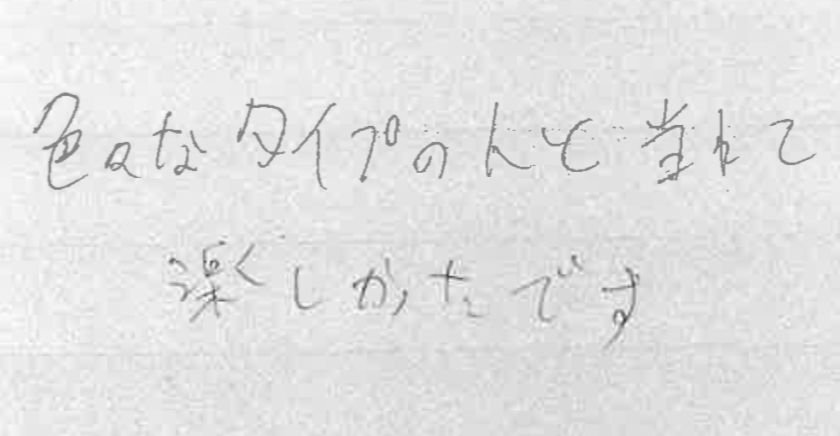 色々なタイプの人と当れて
楽しかったです